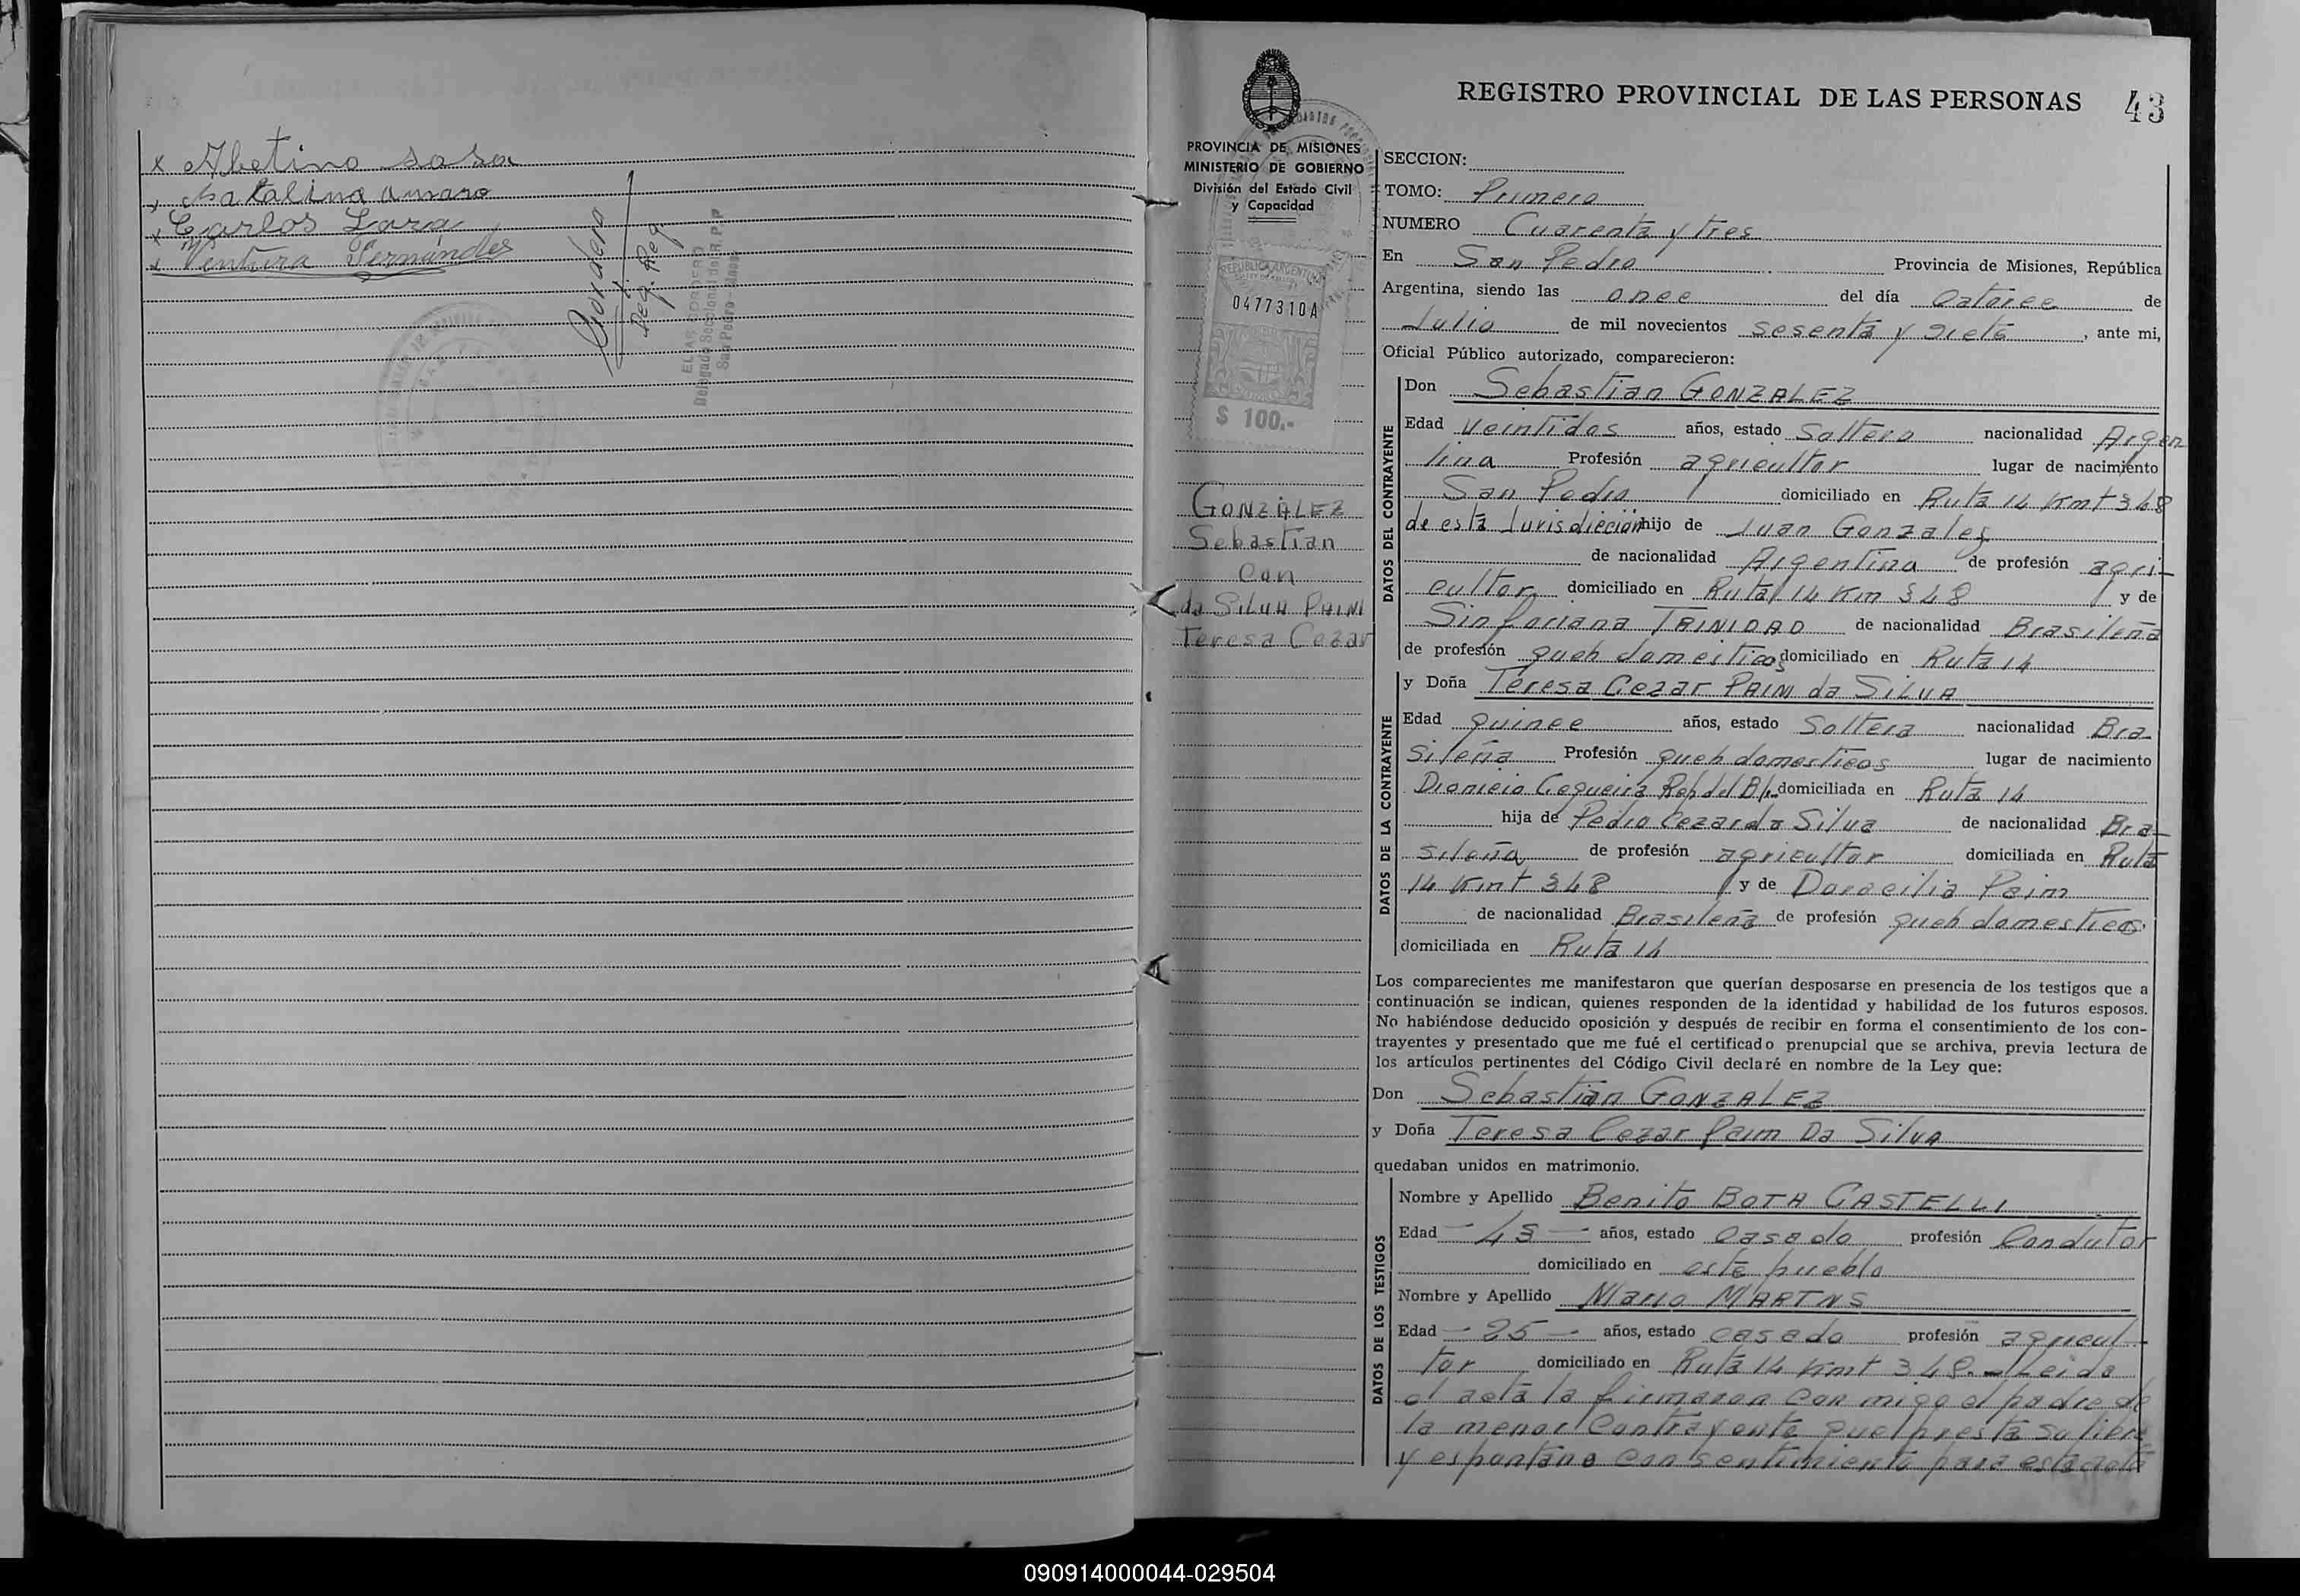 x Albetino sosa
x Catalina amaro
x Carlos Lara
x Ventura Fernándes
Cordero
Deg. Reg
ELIAS CORDERO
Delegado Seccional del R.P.P
San Pedro - Mnes.
REGISTRO PROVINCIAL DE LAS PERSONAS 43
PROVINCIA DE MISIONES
MINISTERIO DE GOBIERNO
División del Estado Civil
y Capacidad
REPUBLICA ARGENTINA
0477310A
$ 100.-
GONZALEZ
Sebastian
con
da SILVA PAIM
Teresa Cezar
SECCION:
TOMO: Primero
NUMERO Cuarenta y tres
En San Pedro Provincia de Misiones, República
Argentina, siendo las once del día catorce de
Julio de mil novecientos sesenta y siete, ante mi,
Oficial Público autorizado, comparecieron:
DATOS DEL CONTRAYENTE
Don Sebastian GONZALEZ
Edad veintidos años, estado Soltero nacionalidad Argen
tina Profesión agricultor lugar de nacimiento
San Pedro domiciliado en Ruta 14 Kmt 348
de esta Jurisdiccion hijo de Juan Gonzalez
de nacionalidad Argentina de profesión agri-
cultor domiciliado en Ruta 14 Km 348 y de
Sinforiana TRINIDAD de nacionalidad Brasileña
de profesión queh domesticos domiciliado en Ruta 14
DATOS DE LA CONTRAYENTE
y Doña Teresa Cezar PAIM da SILVA
Edad quince años, estado Soltera nacionalidad Bra-
sileña Profesión queh domesticos lugar de nacimiento
Dionicio Cequeira Rep del Br. domiciliada en Ruta 14
hija de Pedro Cezar da Silva de nacionalidad Bra-
sileña de profesión agricultor domiciliada en Ruta
14 Kmt 348 y de Doracilia Paim
de nacionalidad Brasileña de profesión queh domesticos
domiciliada en Ruta 14
Los comparecientes me manifestaron que querían desposarse en presencia de los testigos que a
continuación se indican, quienes responden de la identidad y habilidad de los futuros esposos.
No habiéndose deducido oposición y después de recibir en forma el consentimiento de los con-
trayentes y presentado que me fué el certificado prenupcial que se archiva, previa lectura de
los artículos pertinentes del Código Civil declaré en nombre de la Ley que:
Don Sebastian GONZALEZ
y Doña Teresa Cezar Paim Da Silva
quedaban unidos en matrimonio.
DATOS DE LOS TESTIGOS
Nombre y Apellido Benito BOTA CASTELLI
Edad - 43 - años, estado casado profesión Condutor
domiciliado en este pueblo
Nombre y Apellido Mario MARTNS
Edad - 25 - años, estado casado profesión agricul-
tor domiciliado en Ruta 14 Kmt 348.- Leida
el acta la firmaron con migo el padre de
la menor Contrayente que presta su libre
y espontano consentimiento para este acto
090914000044-029504